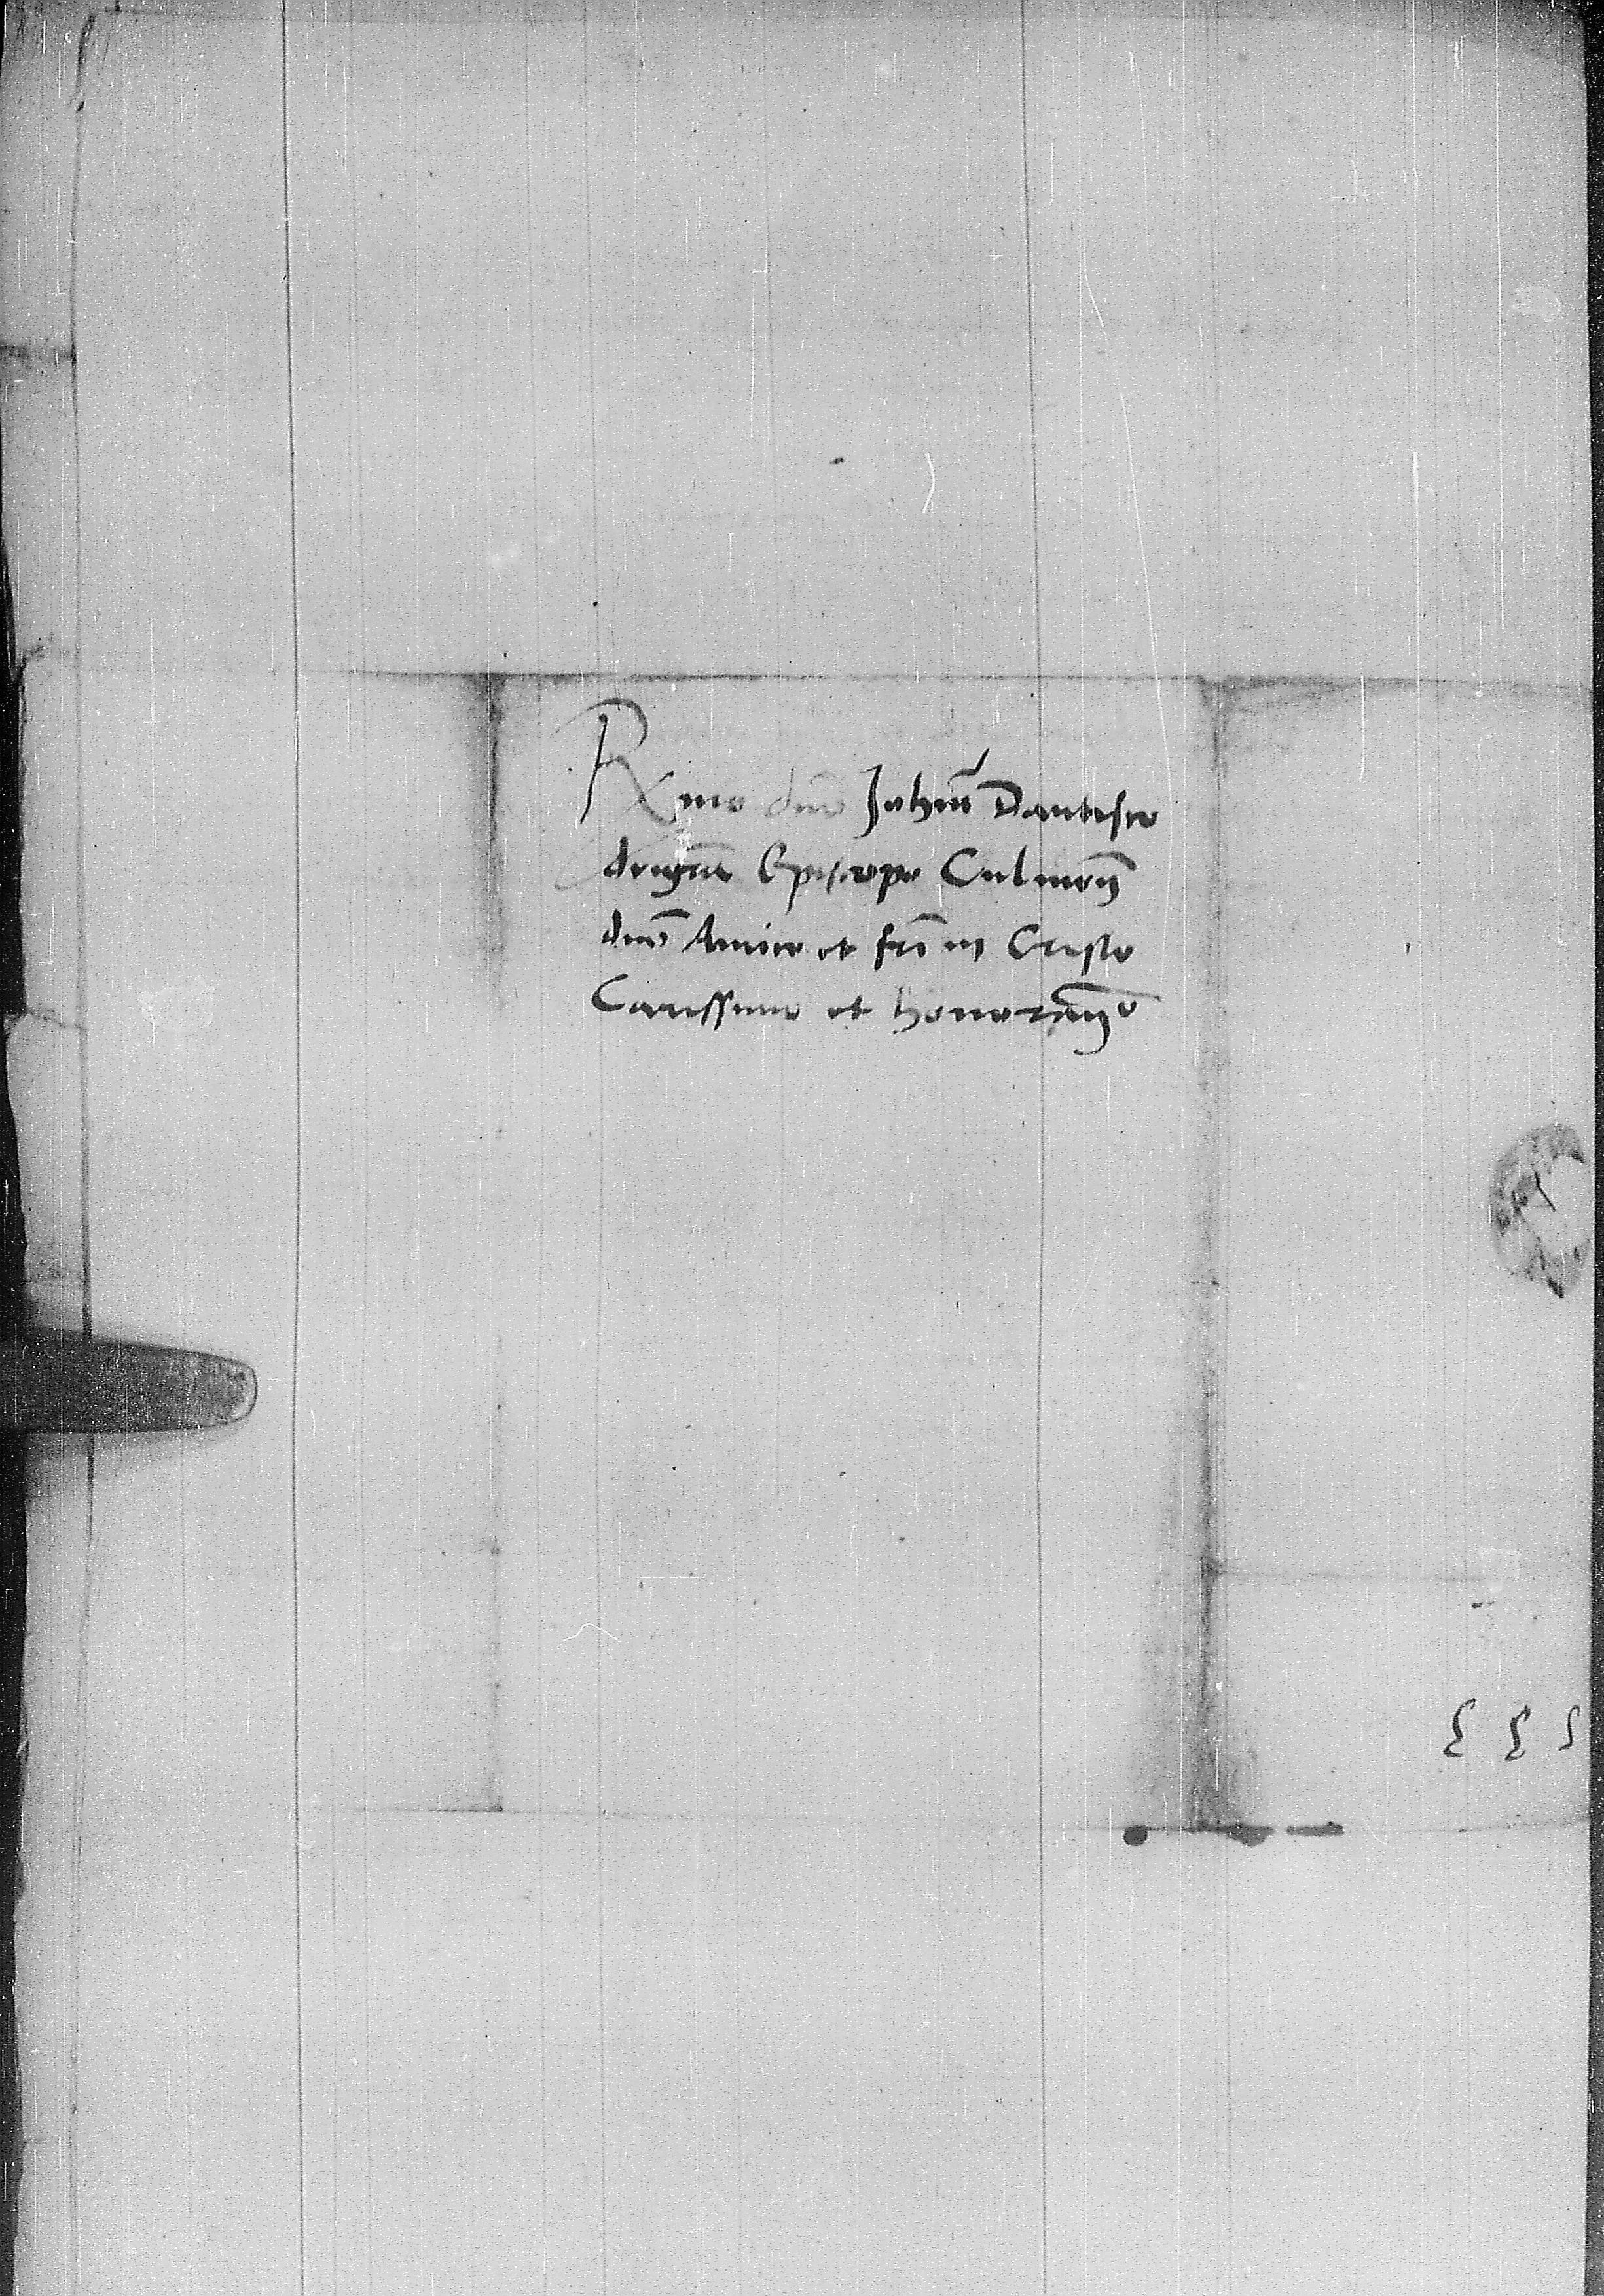 Rxmo dno Johan̄i Dantisco
dei gr̄a Episcopo Culmen̄
dno Amico et fr̄i in Cristo
Carissimo et honoran̄o